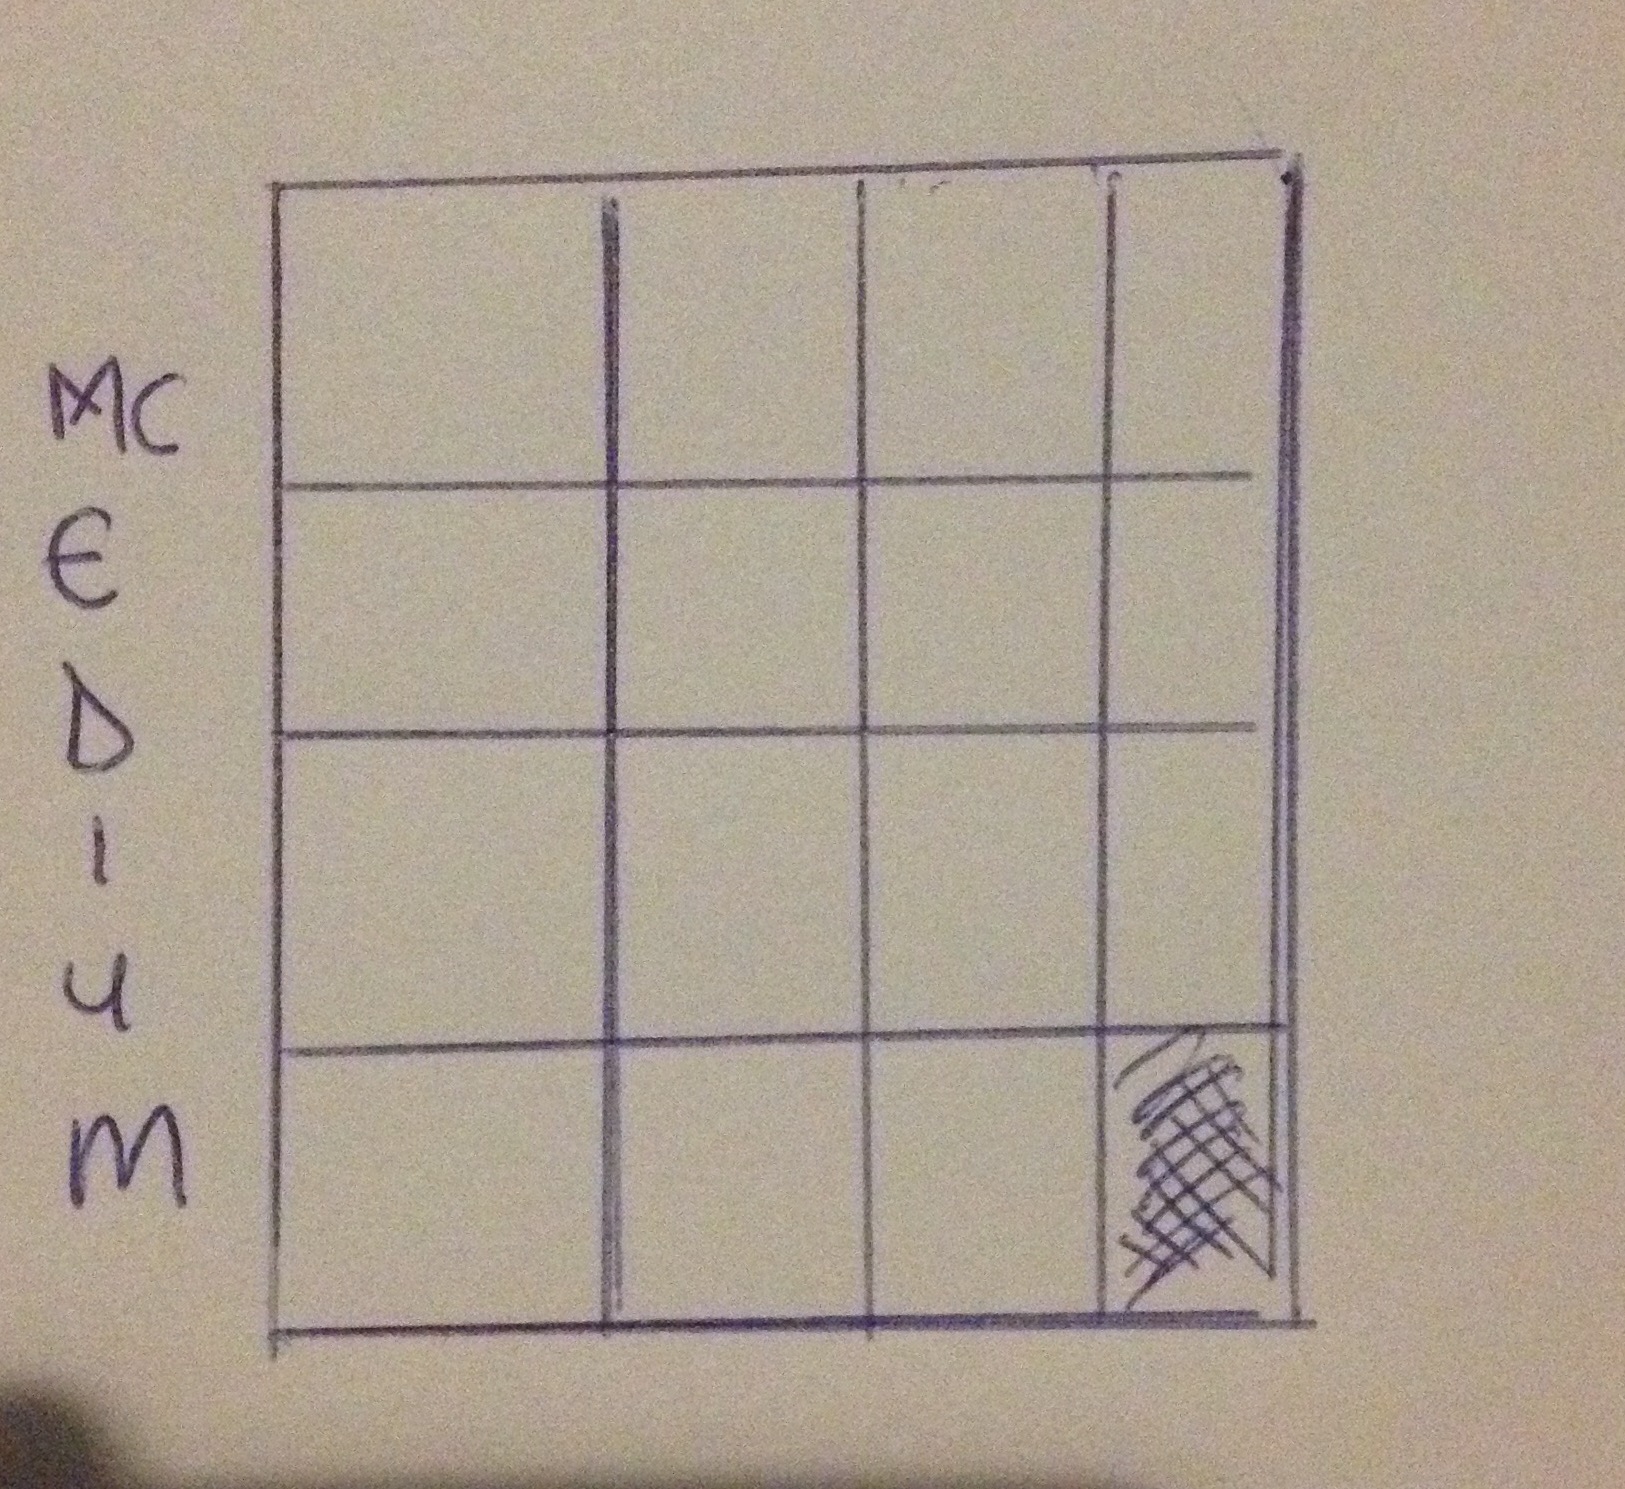 MC
E
D
I
U
M